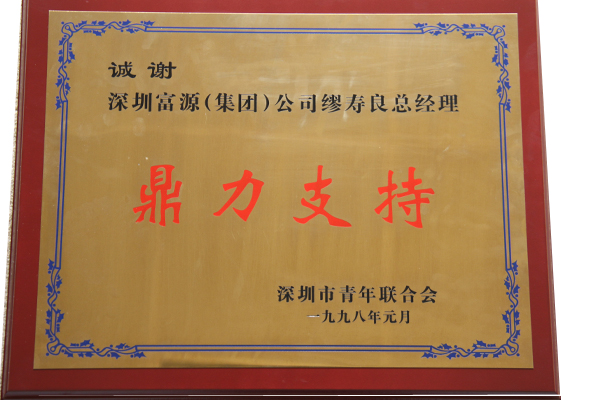 诚谢
深圳富源(集团)公司缪寿良总经理
鼎力支持
深圳市青年联合会
一九九八年元月